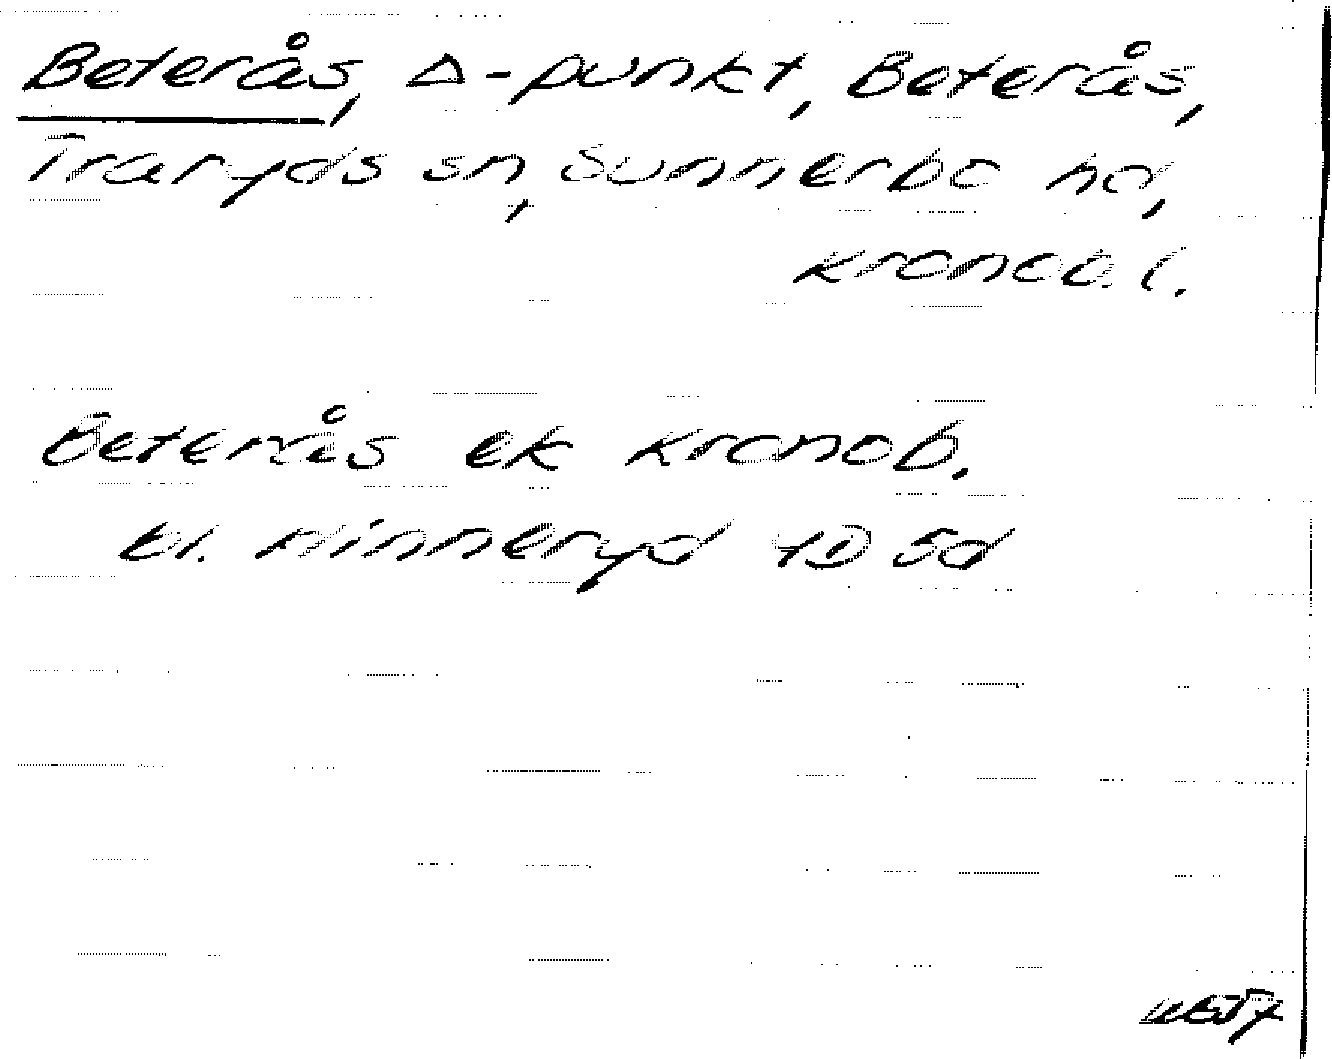 Beterås, Δ-punkt, Beterås,
Traryds sn, Sunnerbo hd,
Kronob. l.
Beterås ek Kronob.
bl. Hinneryd 4D 5d